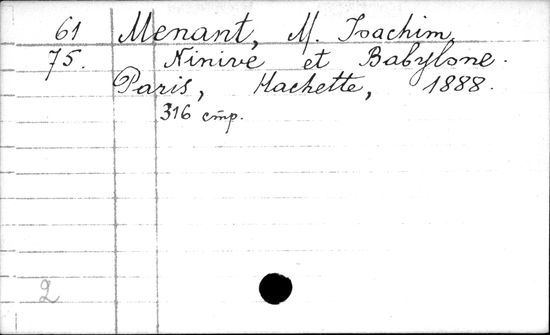 61 Menant, M. Joachim
75. Ninive et Babylone.
Paris, Hachette, 1888.
316 cmp.
2